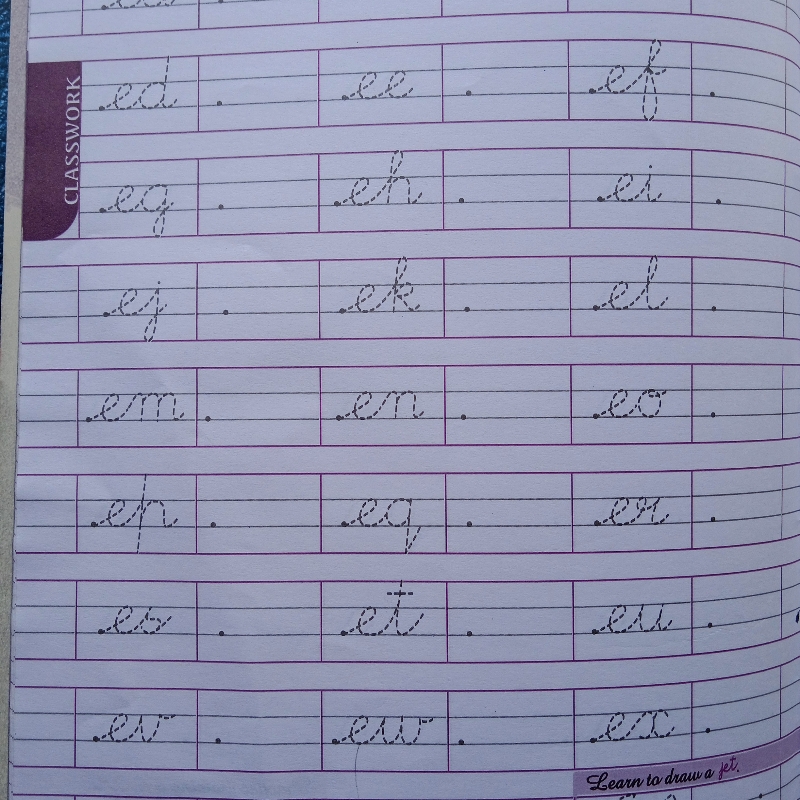 CLASSWORK
ed ee ef
eg eh ei
ej ek el
em en eo
ep eq er
es et eu
ev ew ex
Learn to draw a jet.